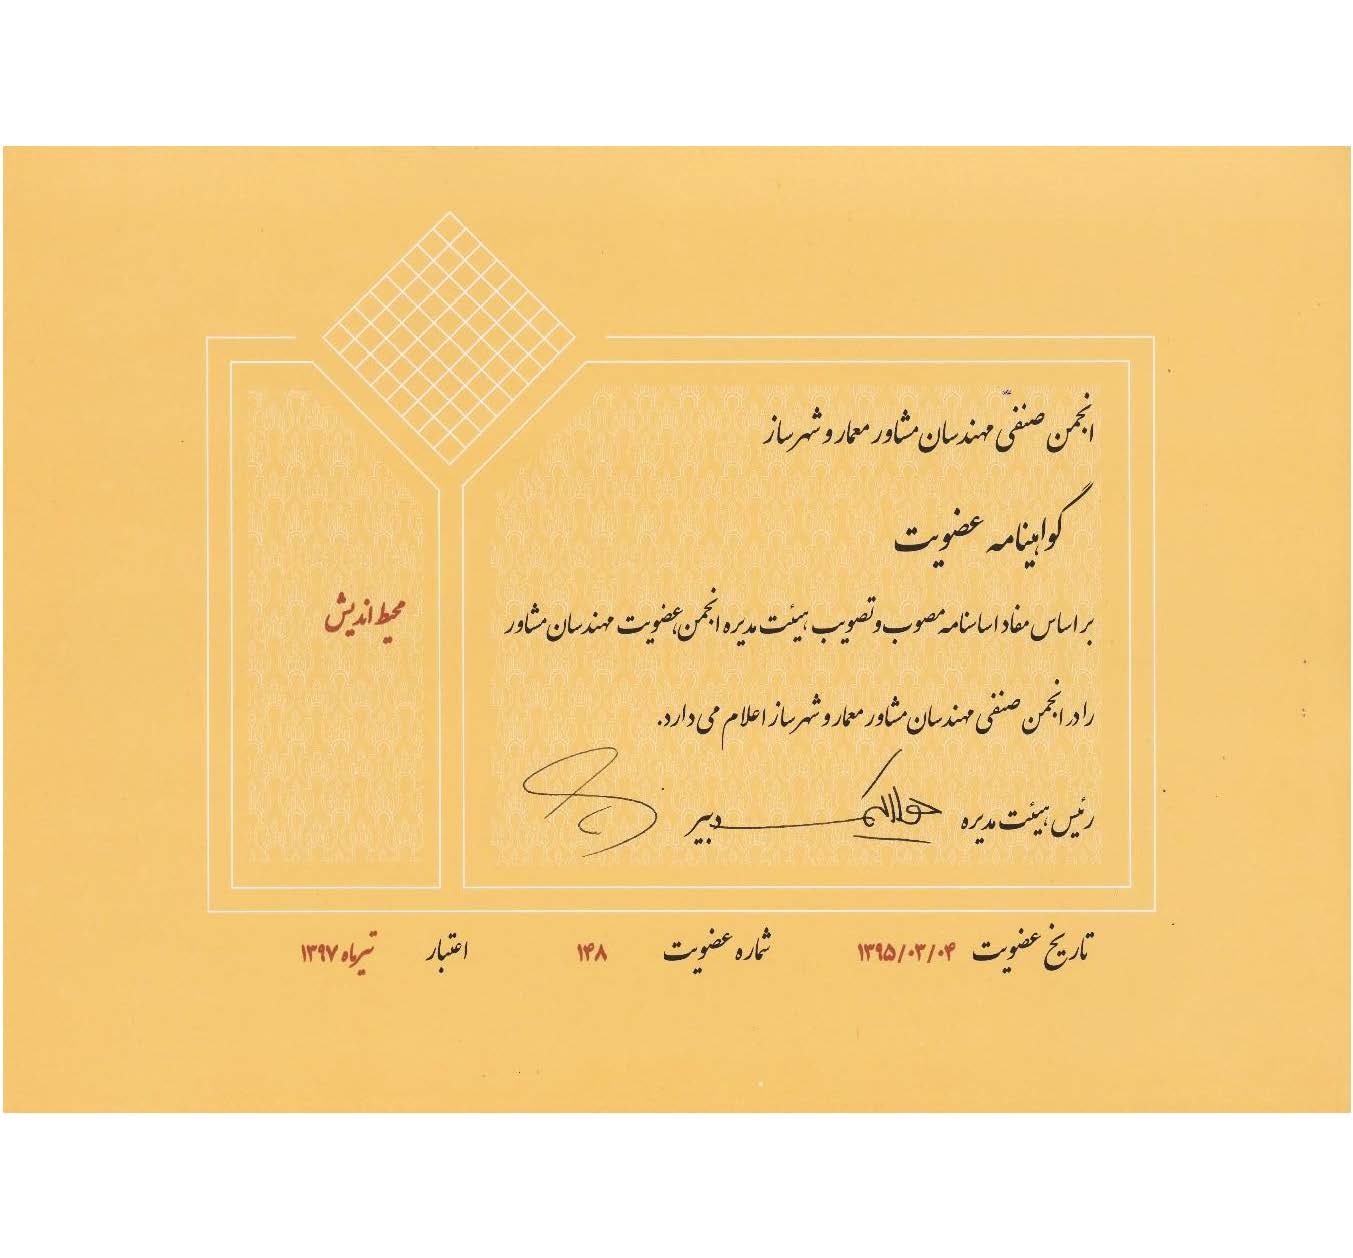 انجمن صنفی مهندسان مشاور معمار و شهرساز
گواهینامه عضویت
بر اساس مفاد اساسنامه مصوب و تصویب هیئت مدیره انجمن، عضویت مهندسان مشاور
محیط اندیش
را در انجمن صنفی مهندسان مشاور معمار و شهرساز اعلام می دارد.
رئیس هیئت مدیره دبیر
تاریخ عضویت ۱۳۹۵/۰۳/۰۴ شماره عضویت ۱۴۸ اعتبار تیرماه ۱۳۹۷